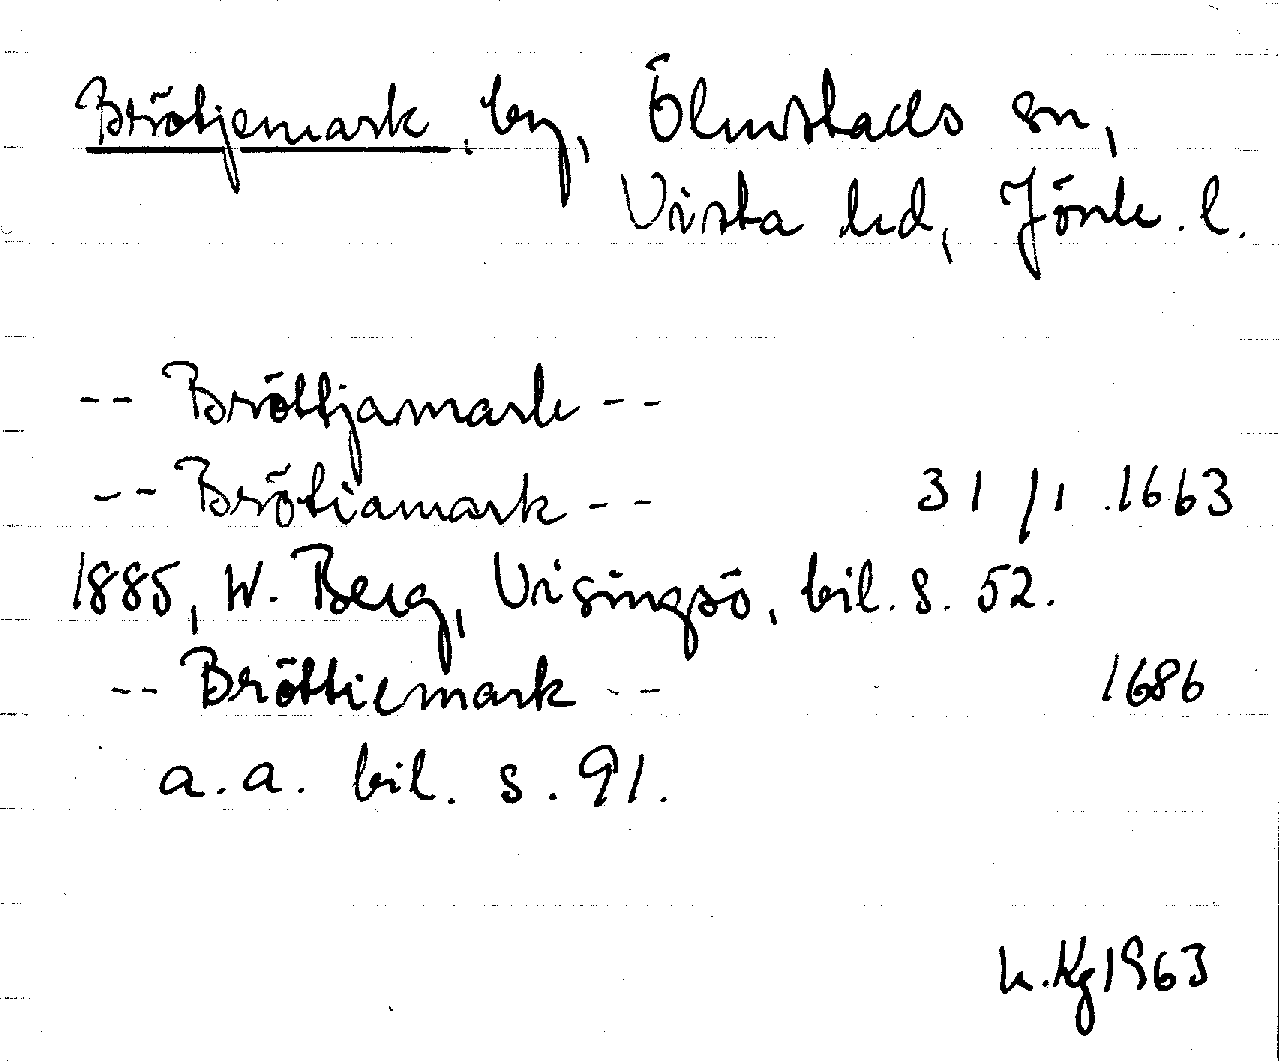 Brötjemark, by, Ölmstads sn,
Vista hd, Jönk. l.
-- Bröttjamark --
-- Brötiamark -- 31/1 1663
1885, W. Berg, Visingsö, bil. s. 52.
-- Bröttiemark -- 1686
a.a. bil. s. 91.
h. Kg 1963